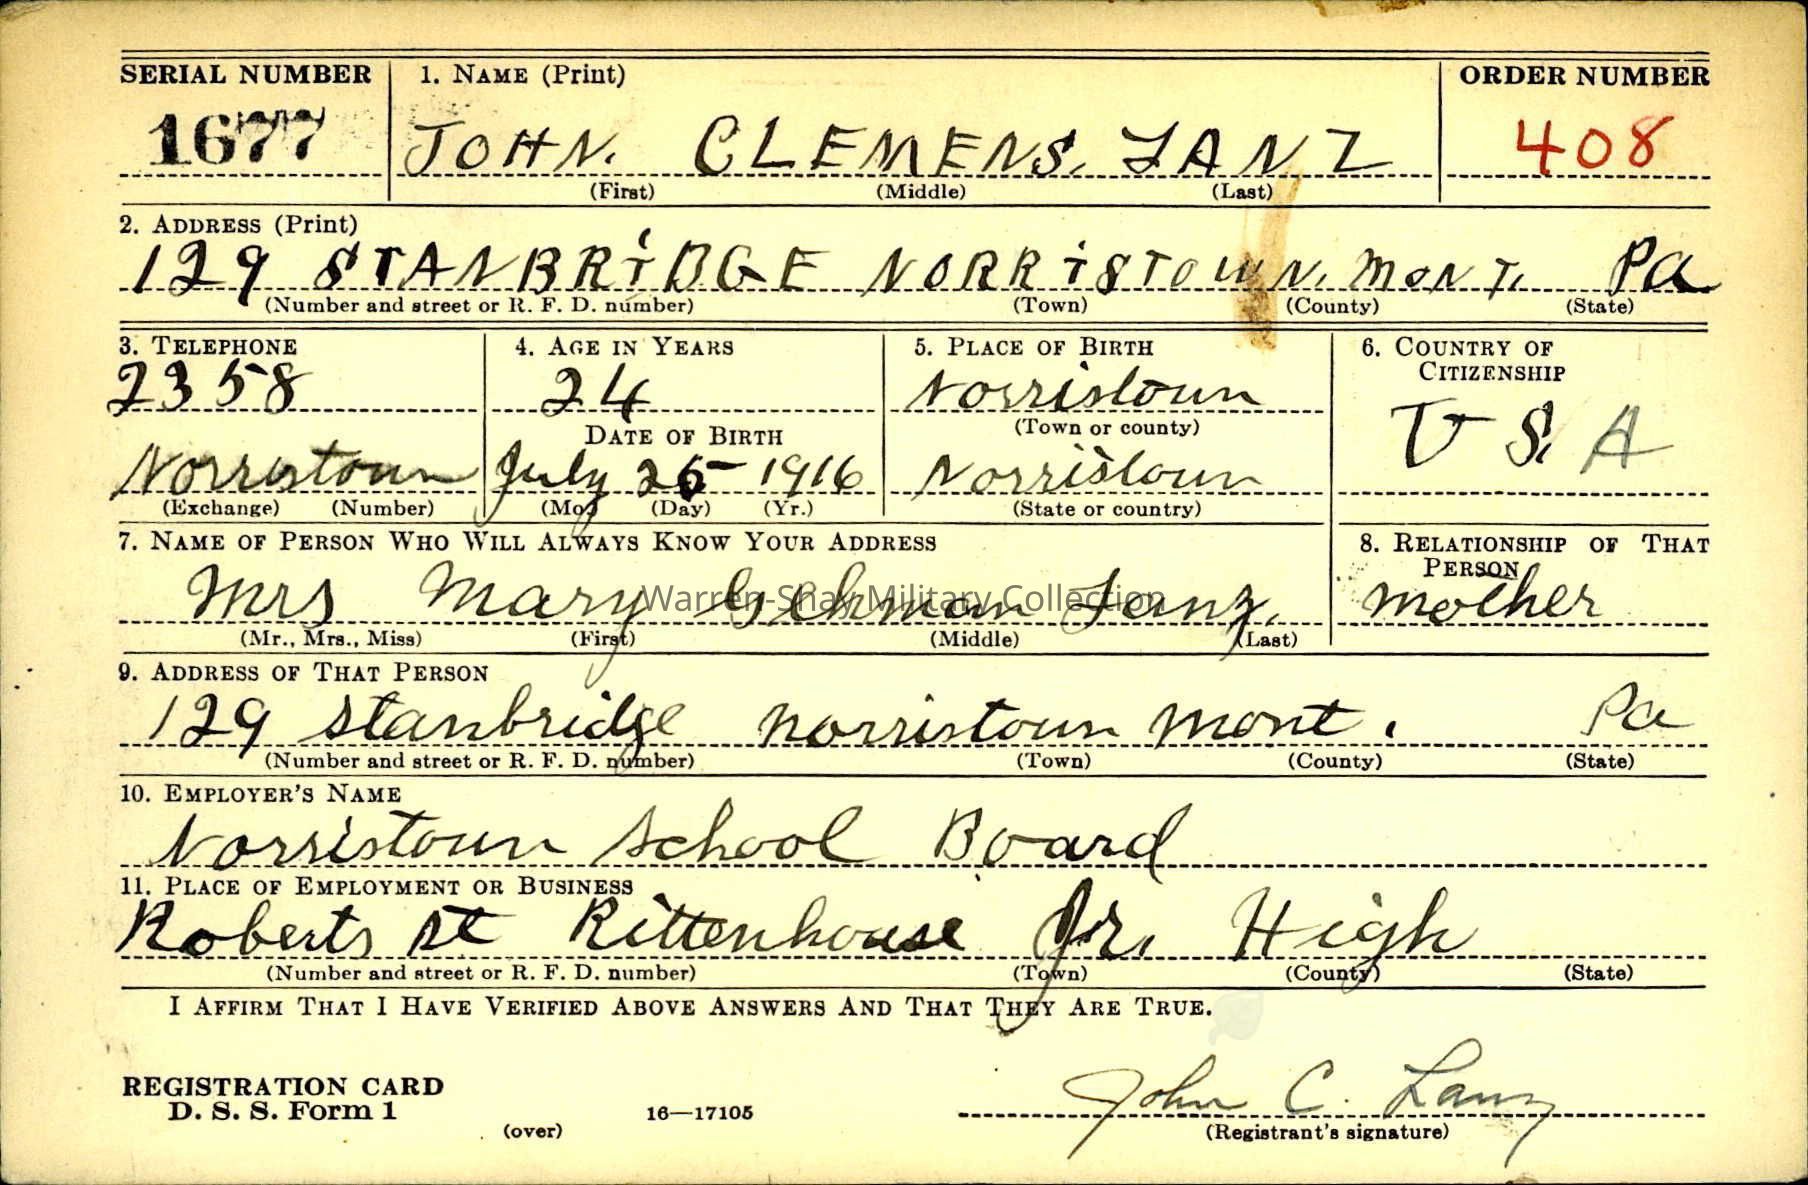 SERIAL NUMBER 1. NAME (Print) ORDER NUMBER
1677 JOHN. CLEMENS. LANZ 408
(First) (Middle) (Last)
2. ADDRESS (Print)
129 STANBRIDGE NORRISTOWN. MONT. Pa
(Number and street or R. F. D. number) (Town) (County) (State)
3. TELEPHONE 4. AGE IN YEARS 5. PLACE OF BIRTH 6. COUNTRY OF CITIZENSHIP
2358 24 Norristown
DATE OF BIRTH (Town or county) U S. A
Norristown July 26 1916 Norristown
(Exchange) (Number) (Mo.) (Day) (Yr.) (State or country)
7. NAME OF PERSON WHO WILL ALWAYS KNOW YOUR ADDRESS 8. RELATIONSHIP OF THAT PERSON
Mrs Mary Gehman Lanz. Mother
Warren-Shay Military Collection
(Mr., Mrs., Miss) (First) (Middle) (Last)
9. ADDRESS OF THAT PERSON
129 Stanbridge Norristown Mont. Pa
(Number and street or R. F. D. number) (Town) (County) (State)
10. EMPLOYER'S NAME
Norristown School Board
11. PLACE OF EMPLOYMENT OR BUSINESS
Roberts St Rittenhouse Jr. High
(Number and street or R. F. D. number) (Town) (County) (State)
I AFFIRM THAT I HAVE VERIFIED ABOVE ANSWERS AND THAT THEY ARE TRUE.
REGISTRATION CARD
D. S. S. Form 1 16—17105 John C. Lanz
(over) (Registrant's signature)